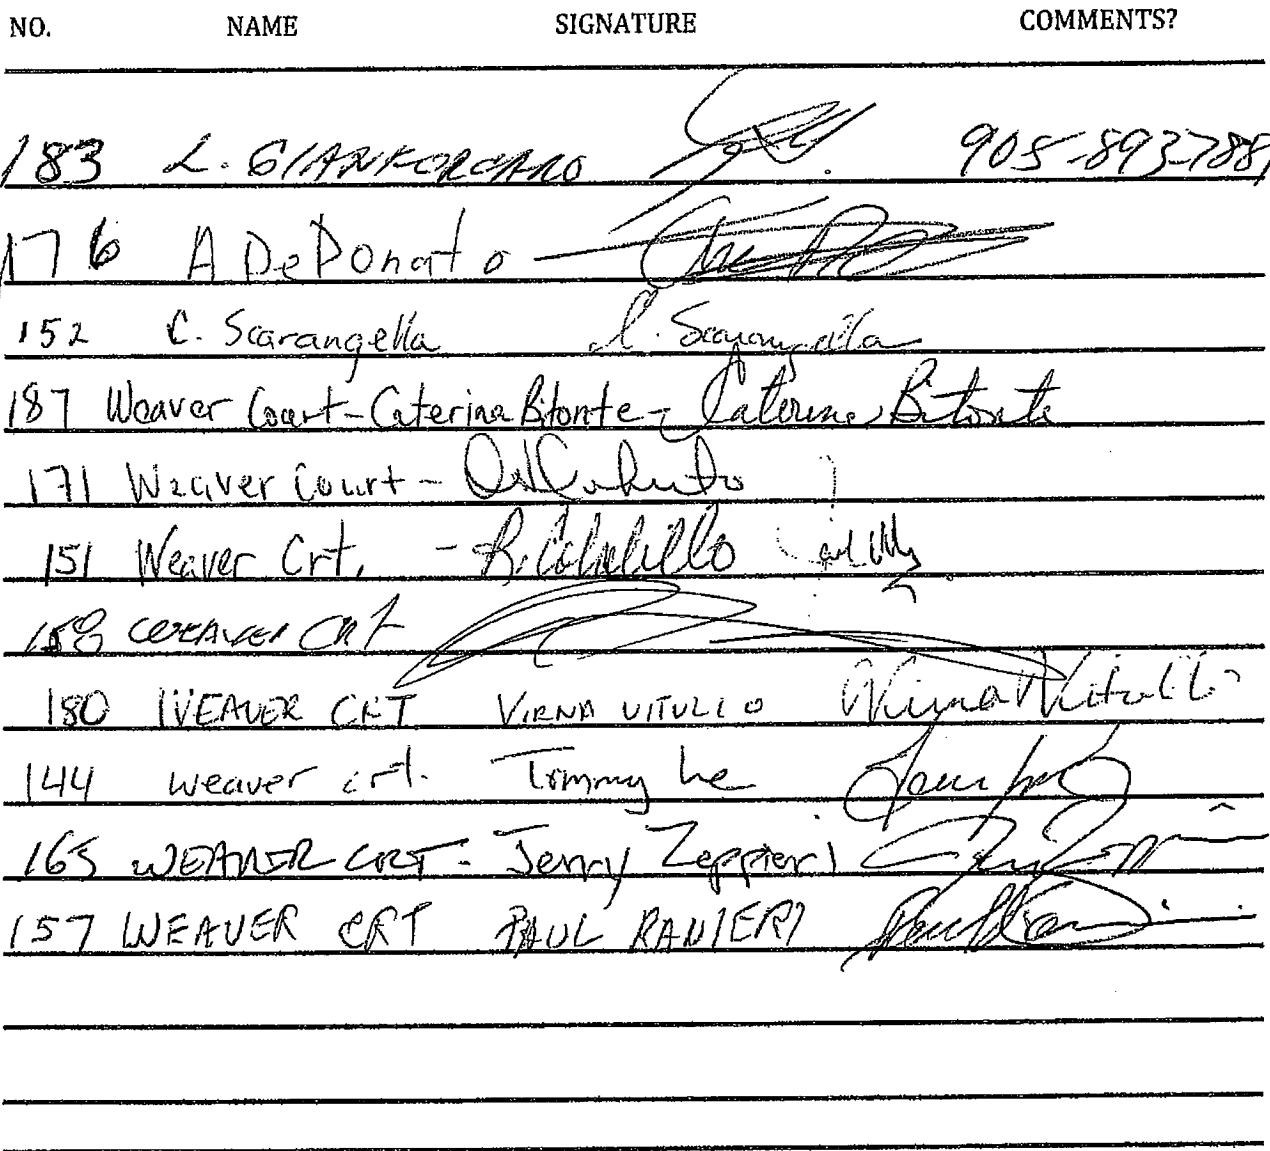 NO. NAME SIGNATURE COMMENTS?
183 L. GIANFORCARO 905-893-788
176 A DeDonato
152 C. Scarangella C. Scarangella
187 Weaver Court - Caterina Bitonte - Caterina Bitonte
171 Weaver Court -
151 Weaver Crt. -
158 WEAVER CRT
180 WEAVER CRT VIRNA VITULLO Virna Vitullo
144 weaver crt. Tommy Le
165 WEAVER CRT - Jerry Zeppieri
157 WEAVER CRT PAUL RANIERI